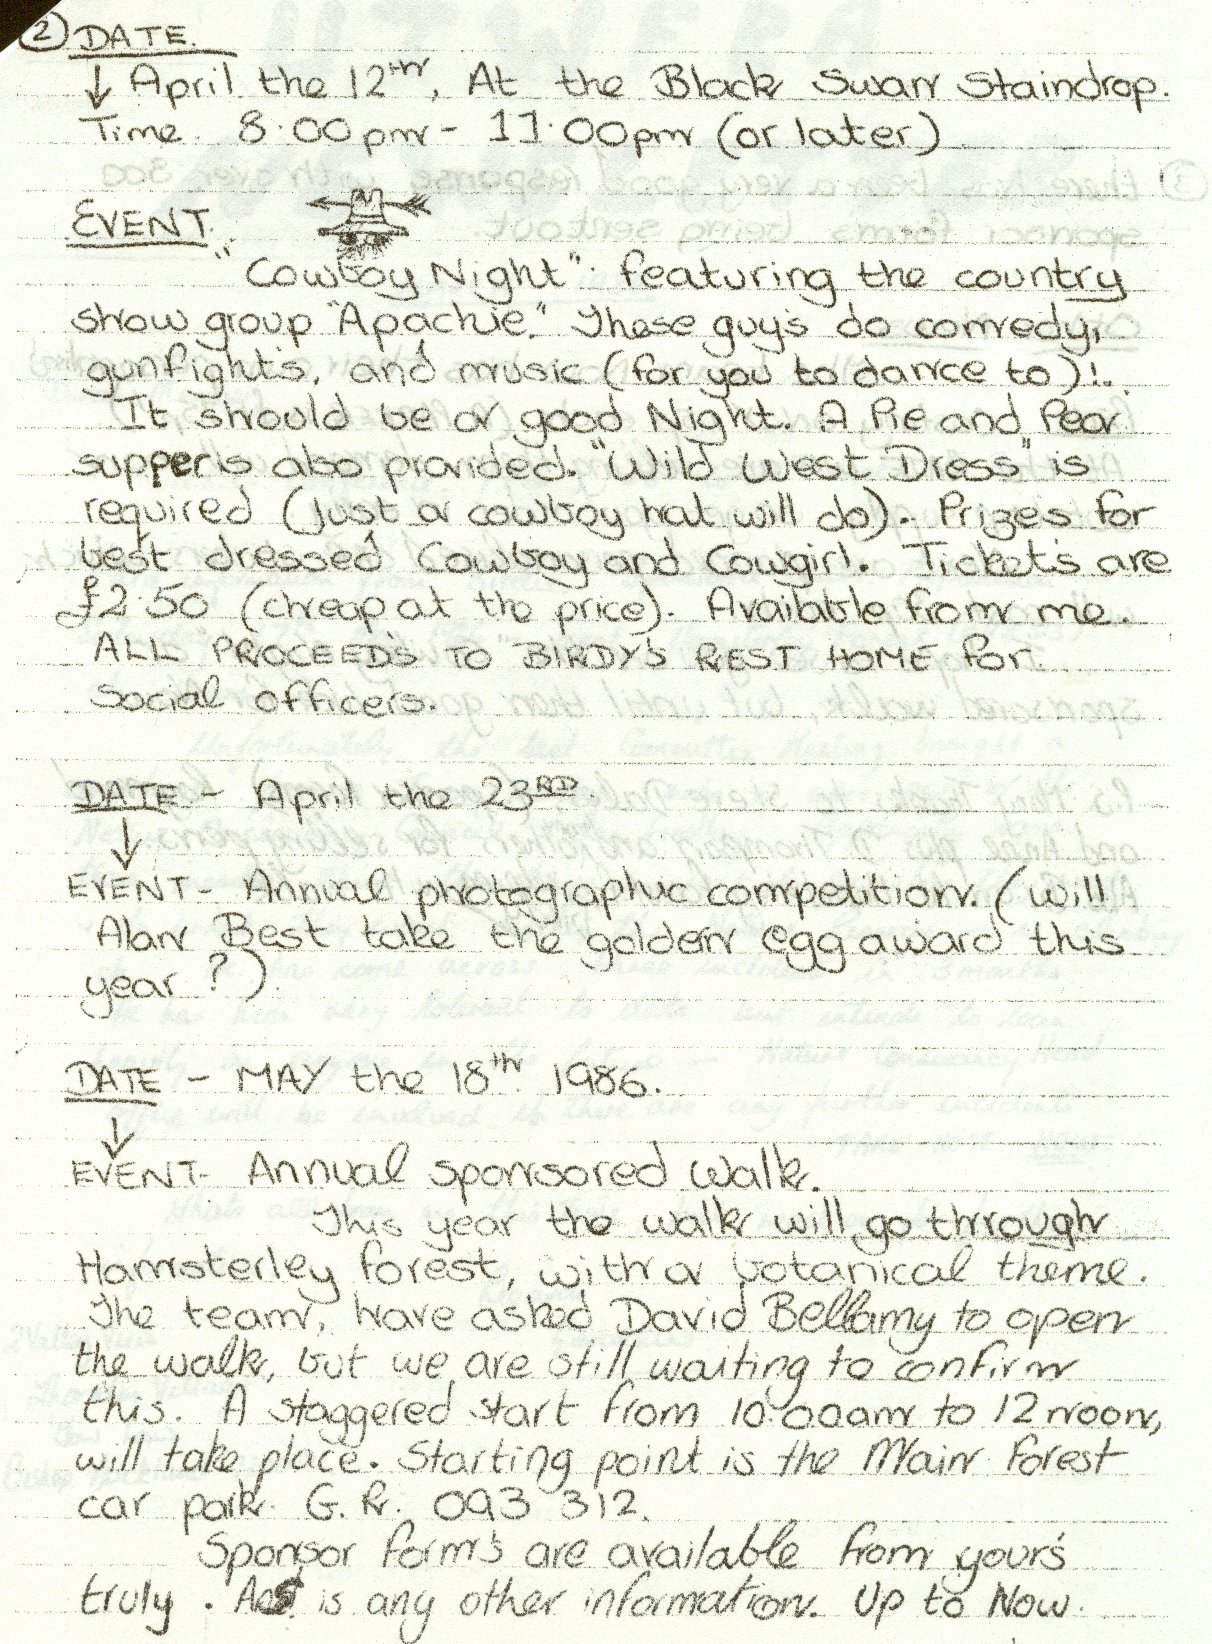 ② DATE.
↓ April the 12th, At the Black Swan Staindrop.
Time. 8.00pm - 11.00pm (or later)
EVENT.
"Cowboy Night". featuring the country
show group "Apachie." These guy's do comedy,
gunfight's, and music (for you to dance to)!.
It should be a good Night. A Pie and Pea
supper is also provided. "Wild West Dress" is
required (Just a cowboy hat will do). Prizes for
best dressed Cowboy and Cowgirl. Ticket's are
£2.50 (cheap at the price). Available from me.
ALL PROCEED'S TO BIRDY'S REST HOME For
Social officer's.
DATE - April the 23RD.
↓
EVENT - Annual photographic competition. (will
Alan Best take the golden egg award this
year ?).
DATE - MAY the 18th 1986.
↓
EVENT - Annual sponsored walk.
This year the walk will go through
Hamsterley forest, with a botanical theme.
The team, have asked David Bellamy to open
the walk, but we are still waiting to confirm
this. A staggered start from 10.00am to 12 noon,
will take place. Starting point is the Main Forest
car park. G.R. 093 312.
Sponsor form's are available from your's
truly. As is any other information. Up to Now.